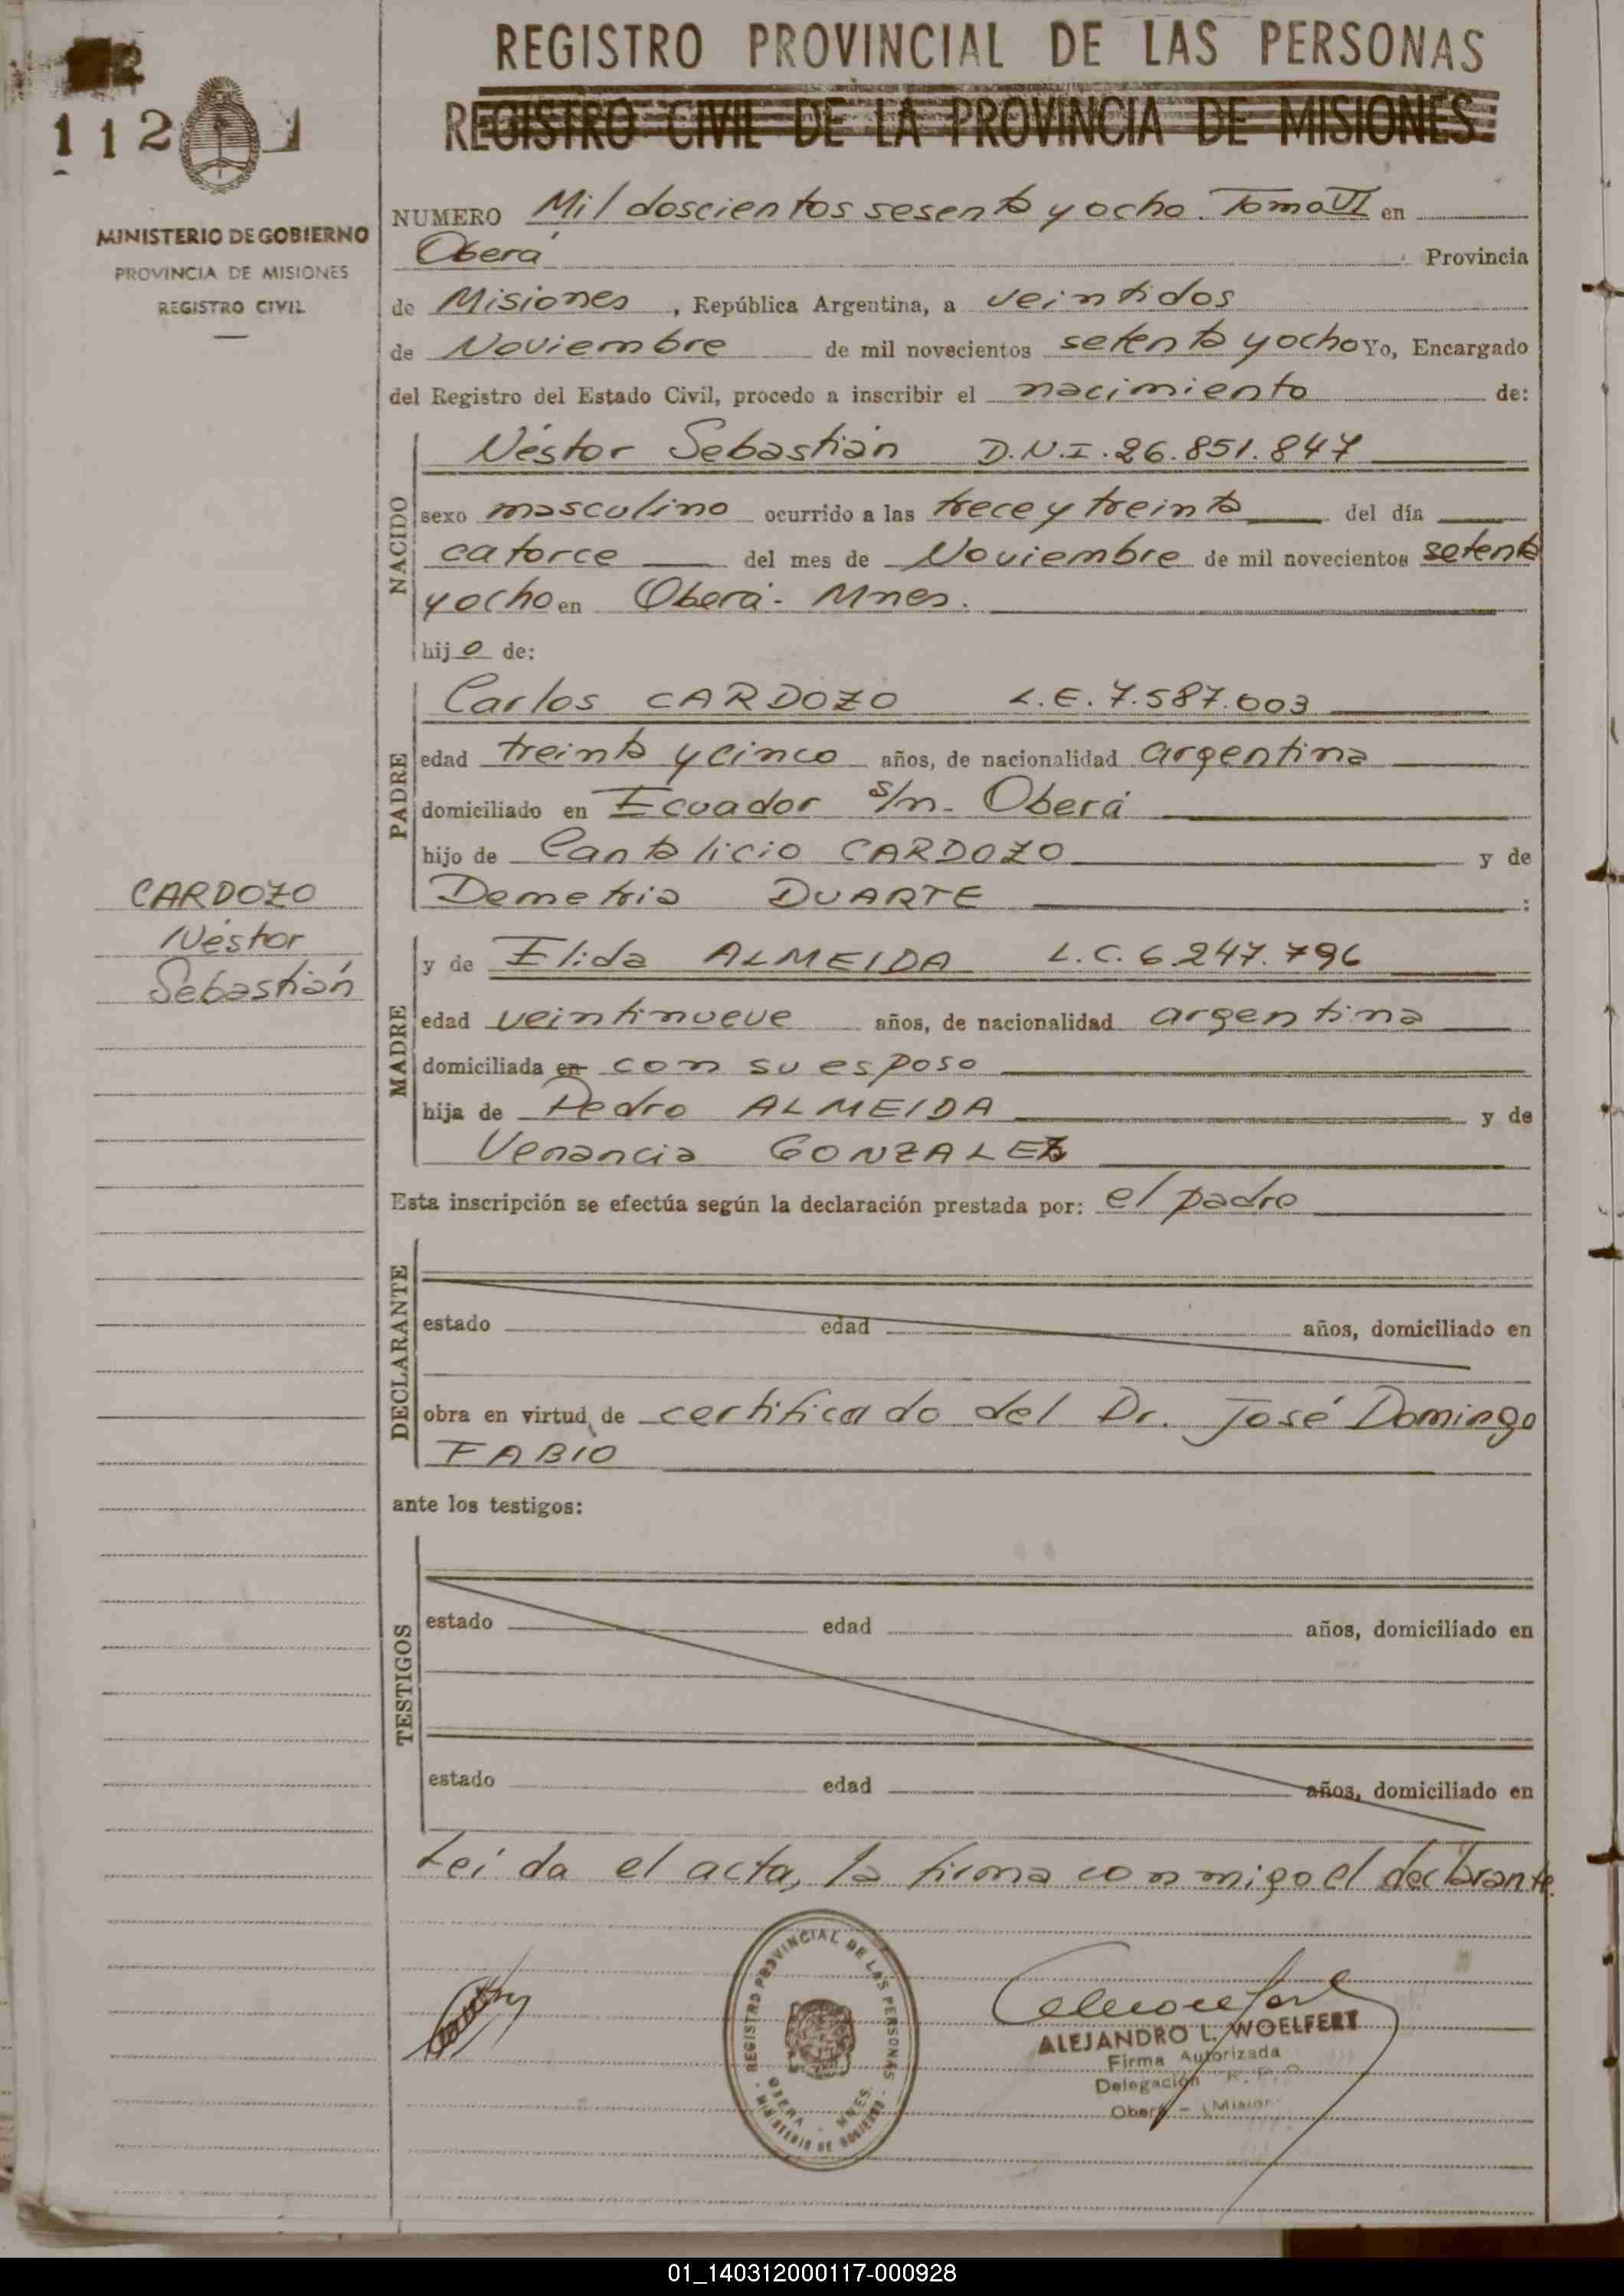 REGISTRO PROVINCIAL DE LAS PERSONAS
REGISTRO CIVIL DE LA PROVINCIA DE MISIONES
112
MINISTERIO DE GOBIERNO
PROVINCIA DE MISIONES
REGISTRO CIVIL
NUMERO Mil doscientos sesenta y ocho. Tomo VI en
Oberá Provincia
de Misiones, República Argentina, a veintidos
de Noviembre de mil novecientos setenta y ocho Yo, Encargado
del Registro del Estado Civil, procedo a inscribir el nacimiento de:
NACIDO
Néstor Sebastián D.N.I. 26.851.847
sexo masculino ocurrido a las trece y treinta del día
catorce del mes de Noviembre de mil novecientos setenta
y ocho en Oberá- Mnes.
hijo de:
PADRE
Carlos CARDOZO L.E. 7.587.003
edad treinta y cinco años, de nacionalidad argentina
domiciliado en Ecuador s/n- Oberá
hijo de Cantalicio CARDOZO y de
Demetria DUARTE :
CARDOZO
Néstor
Sebastián
MADRE
y de Elida ALMEIDA L.C. 6.247.796
edad veintinueve años, de nacionalidad argentina
domiciliada en con su esposo
hija de Pedro ALMEIDA y de
Venancia GONZALEZ
Esta inscripción se efectúa según la declaración prestada por: el padre
DECLARANTE
estado edad años, domiciliado en
obra en virtud de certificado del Dr. José Domingo
FABIO
ante los testigos:
TESTIGOS
estado edad años, domiciliado en
estado edad años, domiciliado en
Leída el acta, la firma conmigo el declarante.
REGISTRO PROVINCIAL DE LAS PERSONAS
OBERA - MNES.
MINISTERIO DE GOBIERNO
ALEJANDRO L. WOELFERT
Firma Autorizada
Delegación R. P. P.
Oberá - Misior
01_140312000117-000928